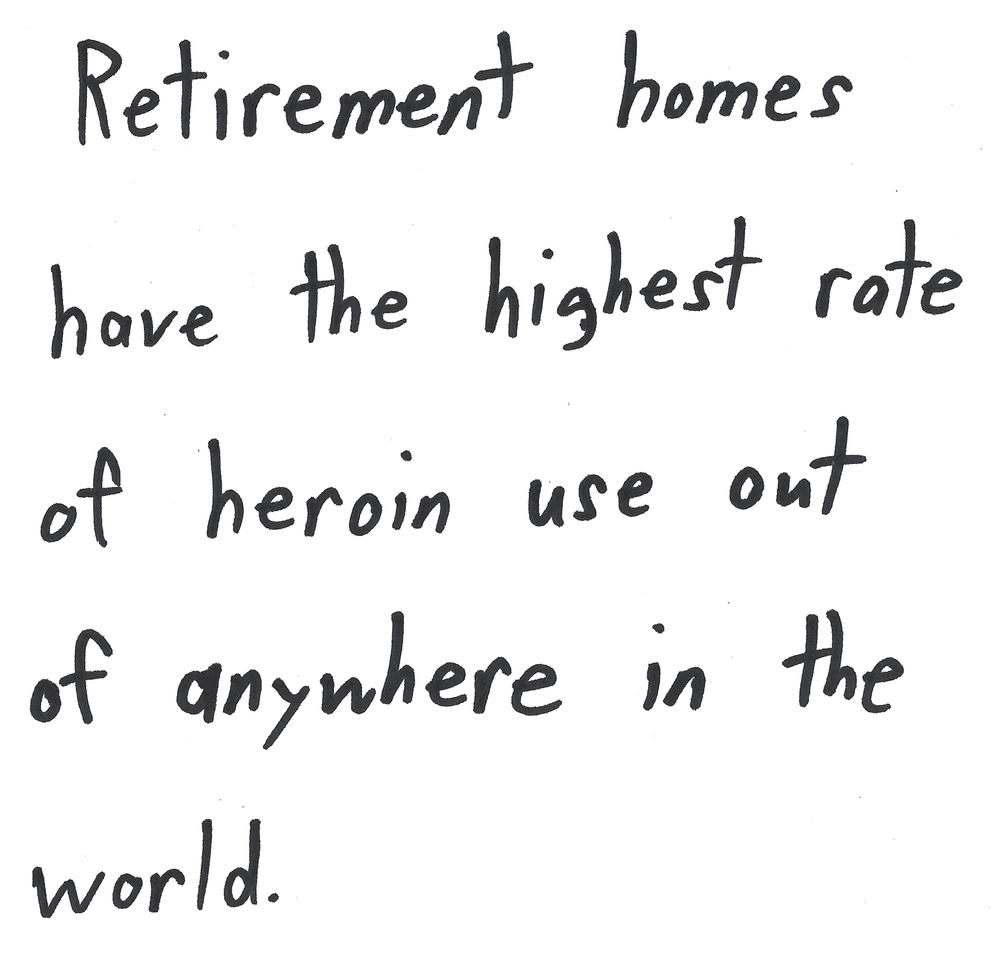 Retirement homes
have the highest rate
of heroin use out
of anywhere in the
world.